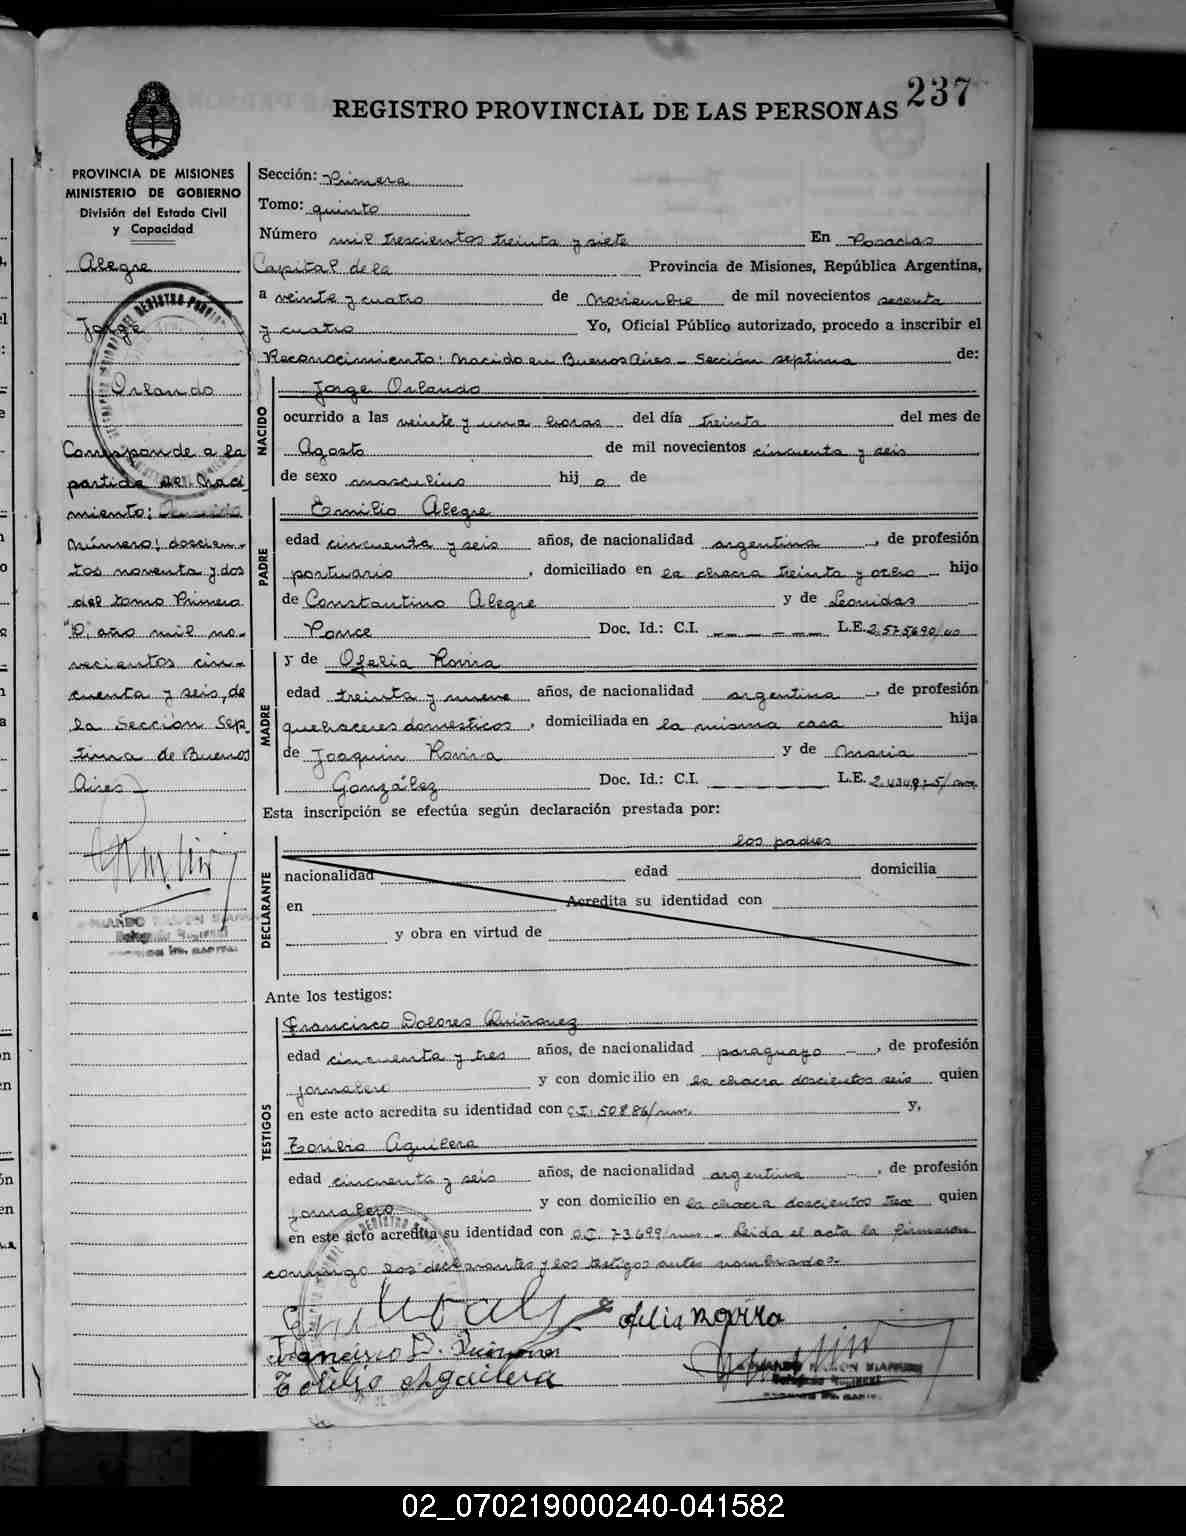 237
REGISTRO PROVINCIAL DE LAS PERSONAS
PROVINCIA DE MISIONES
MINISTERIO DE GOBIERNO
División del Estado Civil
y Capacidad
Alegre
Jorge
Orlando
Corresponde a la
partida de Naci
miento:
Número: doscien-
tos noventa y dos
del tomo Primero
"D", año mil no-
vecientos cin-
cuenta y seis, de
la Sección Sép-
tima de Buenos
Aires
Sección: Primera
Tomo: quinto
Número mil trescientos treinta y siete En Posadas
Capital de la Provincia de Misiones, República Argentina,
a veinte y cuatro de Noviembre de mil novecientos sesenta
y cuatro Yo, Oficial Público autorizado, procedo a inscribir el
Reconocimiento: Nacido en Buenos Aires - Sección septima de:
NACIDO
Jorge Orlando
ocurrido a las veinte y una horas del día treinta del mes de
Agosto de mil novecientos cincuenta y seis
de sexo masculino hij o de
PADRE
Emilio Alegre
edad cincuenta y seis años, de nacionalidad argentina, de profesión
portuario, domiciliado en la chacra treinta y ocho hijo
de Constantino Alegre y de Leonidas
Ponce Doc. Id.: C.I. — — — — L.E. 2.575690/
MADRE
y de Ofelia Rovira
edad treinta y nueve años, de nacionalidad argentina, de profesión
quehaceres domesticos, domiciliada en la misma casa hija
de Joaquin Rovira y de Maria
González Doc. Id.: C.I. — — — — L.E.
Esta inscripción se efectúa según declaración prestada por:
DECLARANTE
los padres
nacionalidad edad domicilia
en Acredita su identidad con
y obra en virtud de
Ante los testigos:
TESTIGOS
Francisco Dolores Quiñonez
edad cincuenta y tres años, de nacionalidad paraguayo, de profesión
jornalero y con domicilio en la chacra doscientos seis quien
en este acto acredita su identidad con C.I. 50886/ y,
Toribio Aguilera
edad cincuenta y seis años, de nacionalidad argentina, de profesión
jornalero y con domicilio en la chacra doscientos trece quien
en este acto acredita su identidad con C.I. 73699/ - Leída el acta la firmaron
conmigo los declarantes y los testigos antes nombrados.-
Ofelia Rovira
Francisco D. Quiñones
Toribio Aguilera
02_070219000240-041582